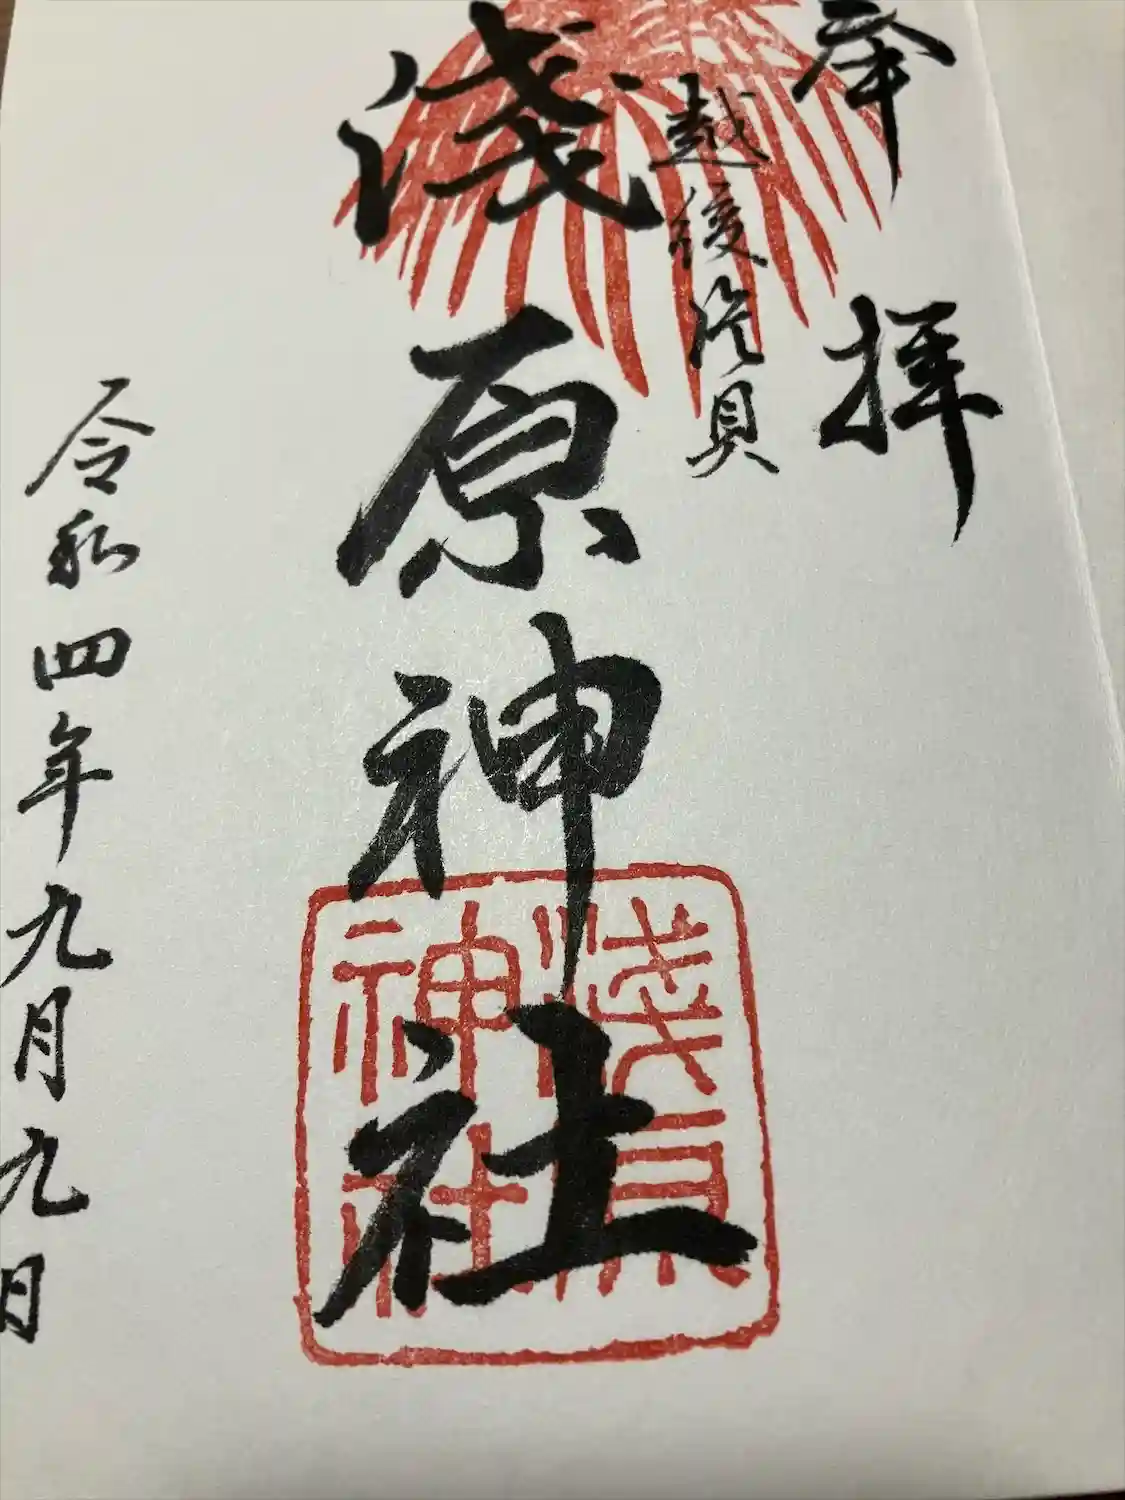 奉拝
越後片貝
淺原神社
淺原
神社
令和四年九月九日